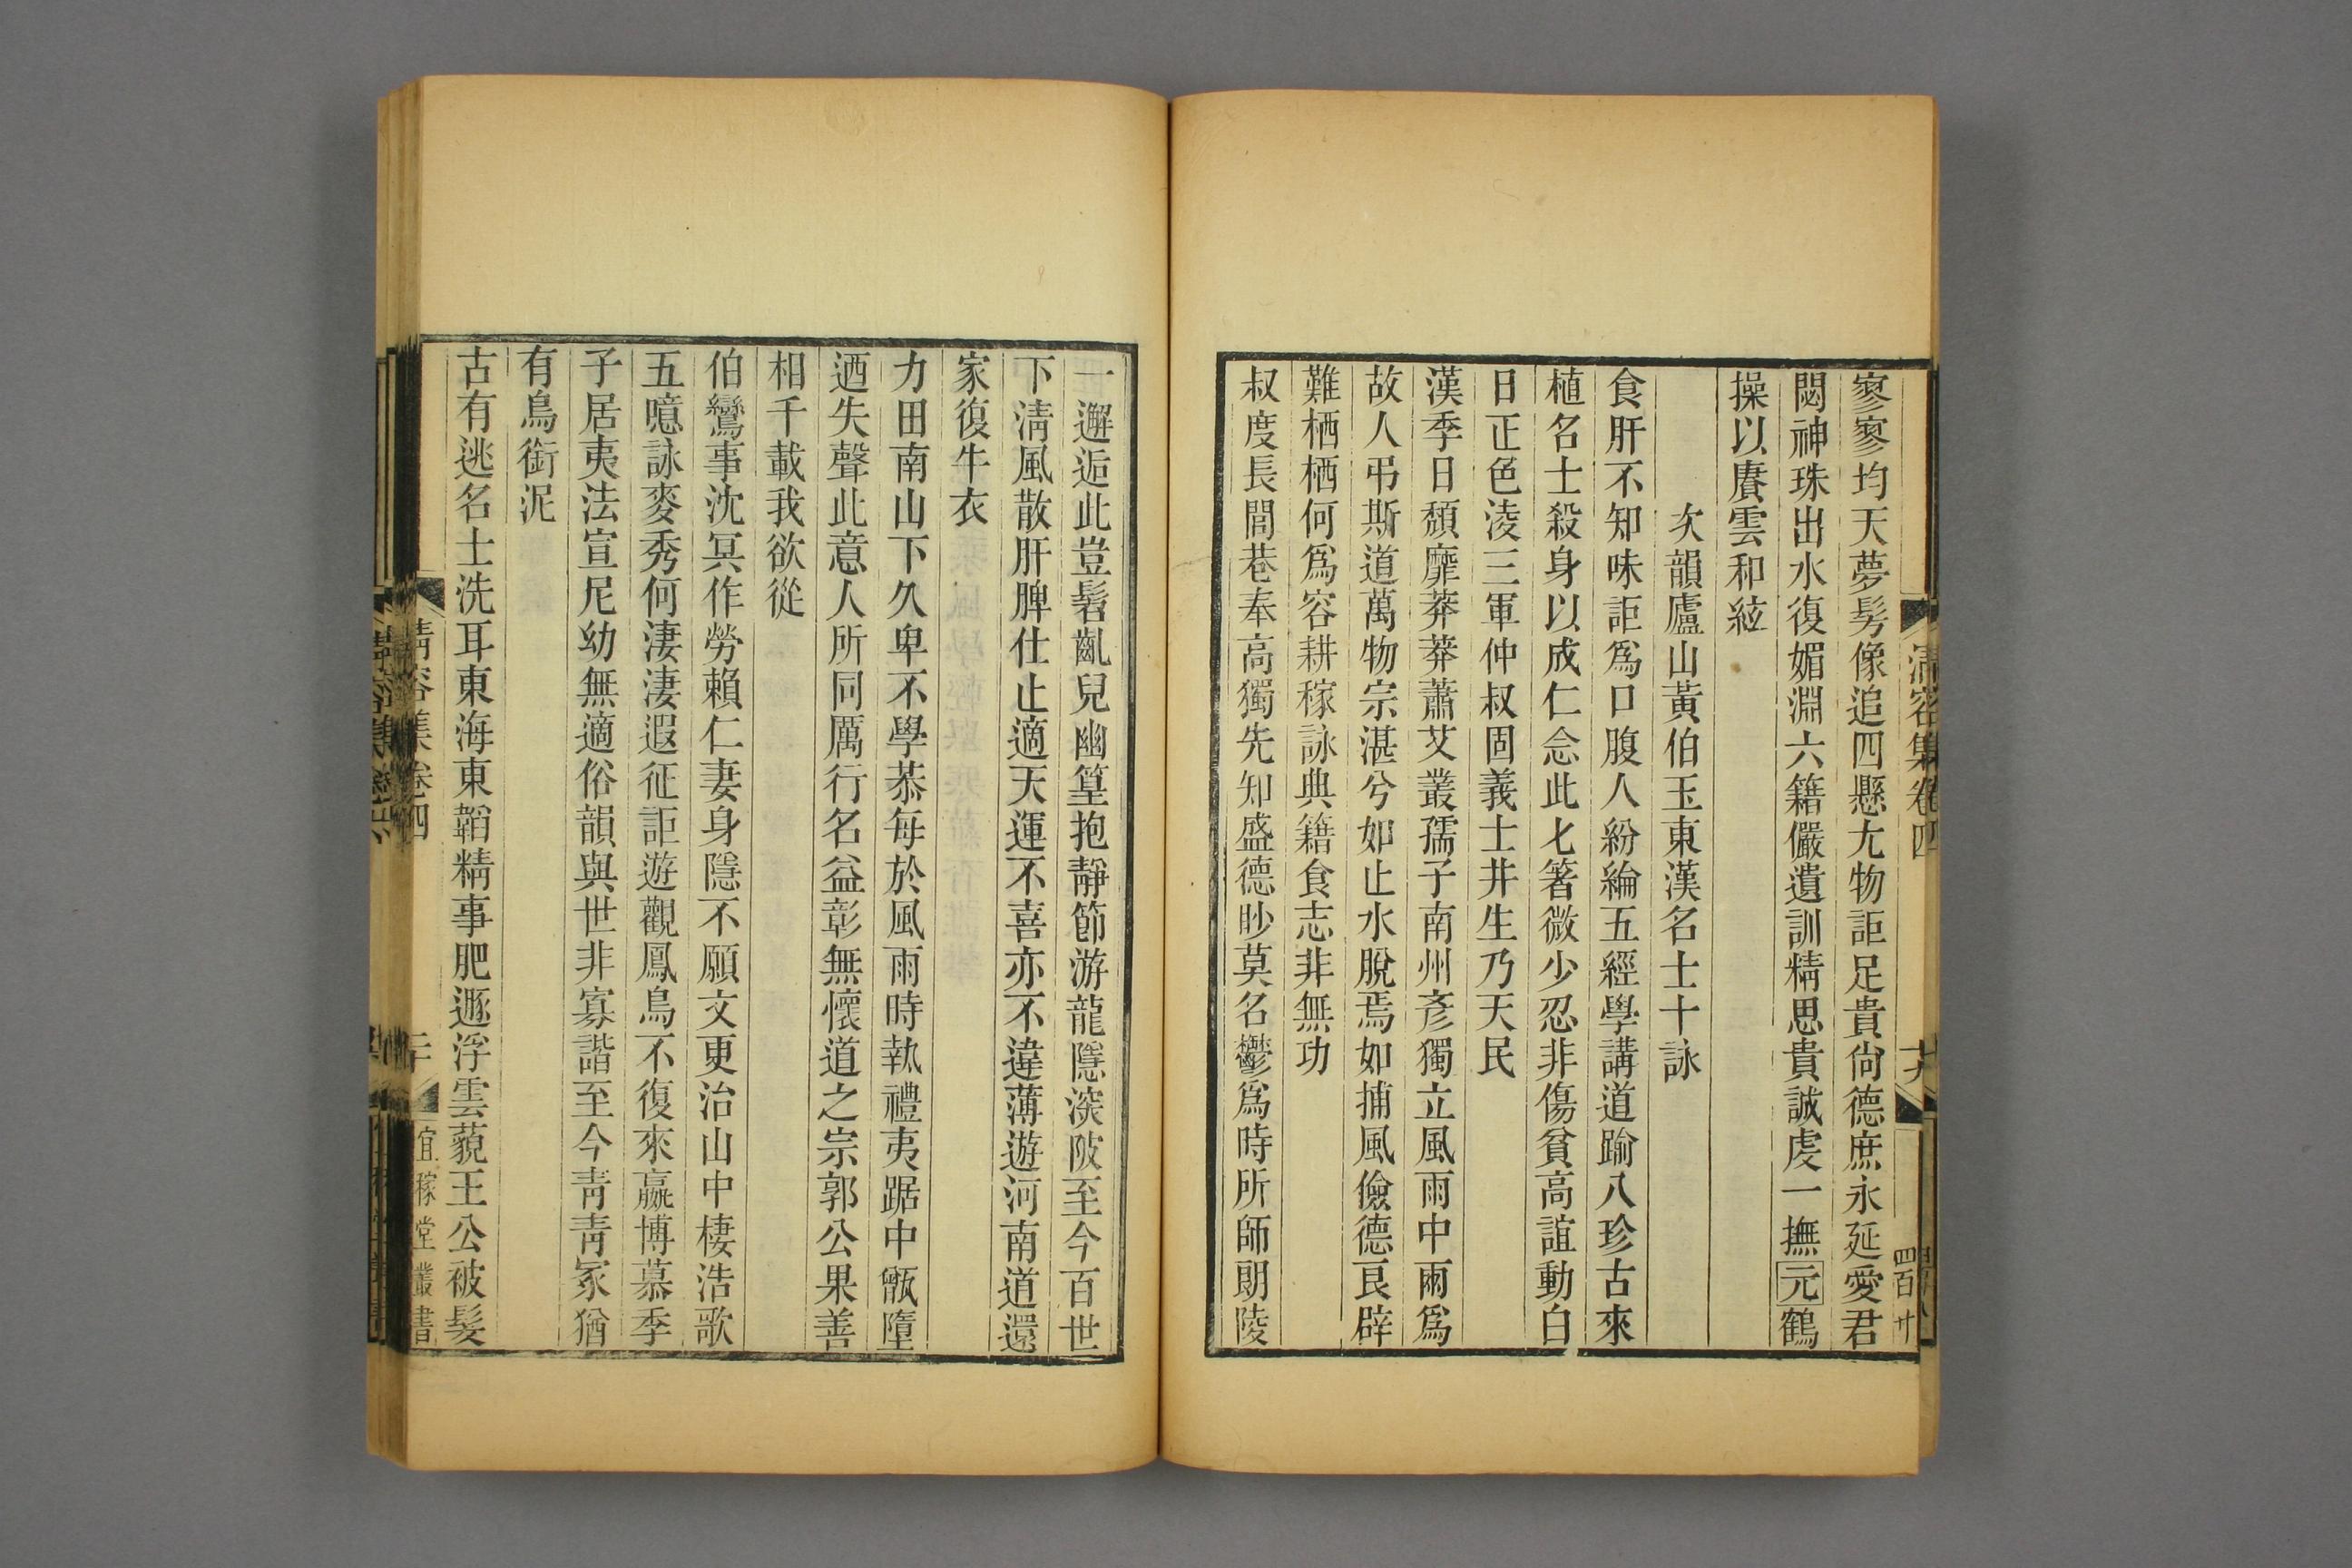 寥寥均天夢髣像追四懸尤物詎足貴尙德庶永延愛君
閟神珠出水復媚淵六籍儼遺訓精思貴誠虔一撫元鶴
操以賡雲和絃
次韻廬山黃伯玉東漢名士十詠
食肝不知味詎爲口腹人紛綸五經學講道踰八珍古來
植名士殺身以成仁念此匕箸微少忍非傷貧高誼動白
日正色淩三軍仲叔固義士井生乃天民
漢季日頹靡莽莽蕭艾叢孺子南州彥獨立風雨中爾爲
故人弔斯道萬物宗湛兮如止水脫焉如捕風儉德艮辟
難栖栖何爲容耕稼詠典籍食志非無功
叔度長閭巷奉高獨先知盛德眇莫名鬱爲時所師朗陵
一邂逅此豈髫齓兒幽篁抱靜節游龍隱深陂至今百世
下淸風散肝脾仕止適天運不喜亦不違薄遊河南道還
家復牛衣
力田南山下久卑不學恭每於風雨時執禮夷踞中甑墮
迺失聲此意人所同厲行名益彰無懷道之宗郭公果善
相千載我欲從
伯鸞事沈冥作勞賴仁妻身隱不願文更治山中棲浩歌
五噫詠麥秀何淒淒遐征詎遊觀鳳鳥不復來嬴博慕季
子居夷法宣尼幼無適俗韻與世非寡諧至今靑靑冢猶
有烏銜泥
古有逃名士洗耳東海東韜精事肥遯浮雲藐王公被髮
清容集卷四
十九
四百廿
清容集卷四
二十
宜稼堂叢書